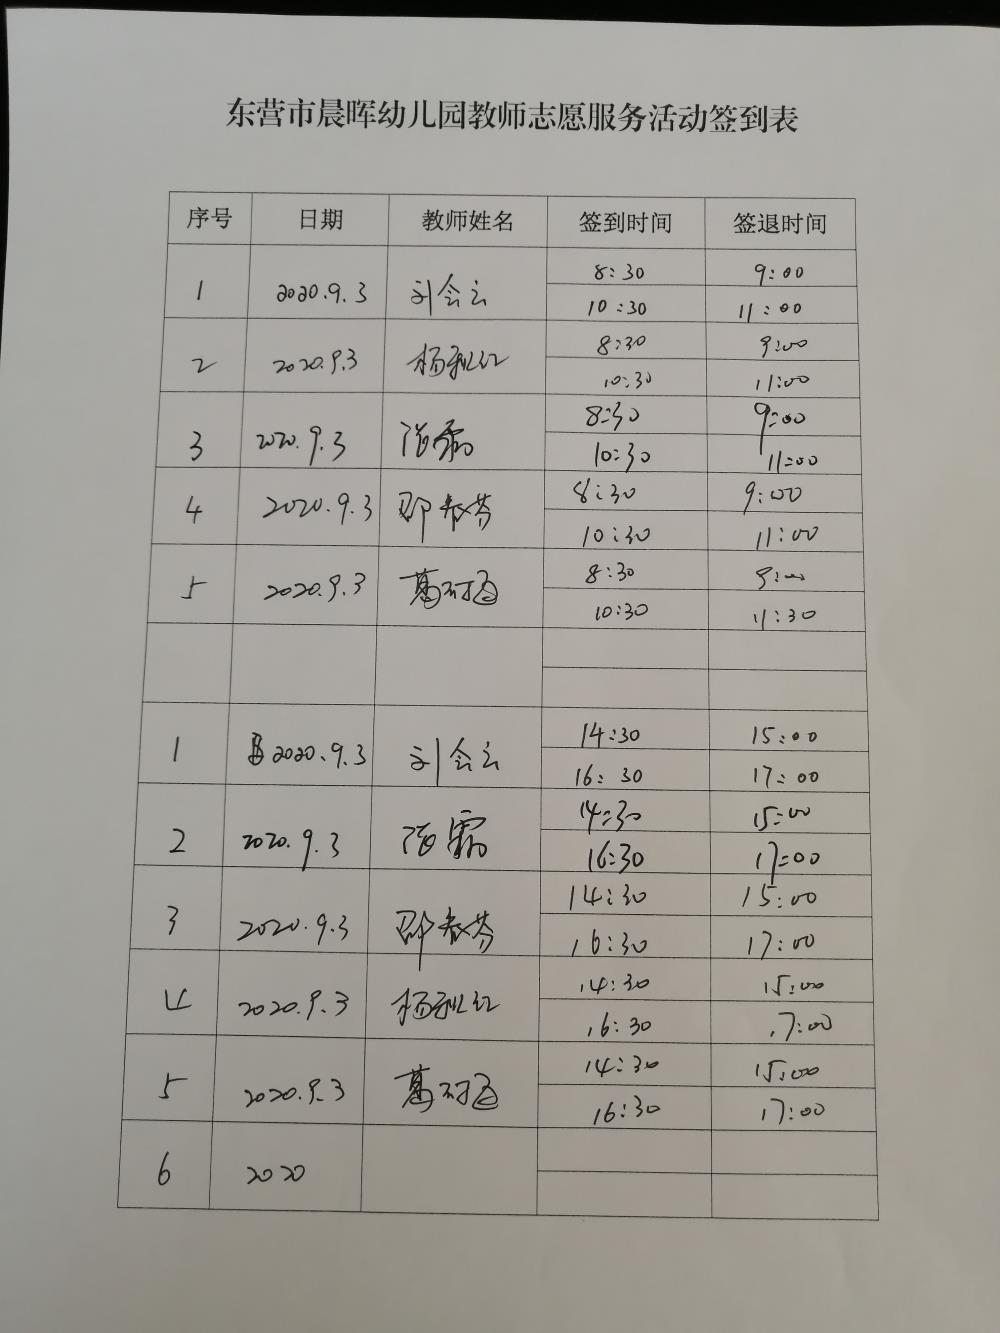 东营市晨晖幼儿园教师志愿服务活动签到表
序号 日期 教师姓名 签到时间 签退时间
1 2020.9.3 刘会云 8:30 9:00
10:30 11:00
2 2020.9.3 杨利红 8:30 9:00
10:30 11:00
3 2020.9.3 8:30 9:00
10:30 11:00
4 2020.9.3 邵春芬 8:30 9:00
10:30 11:00
5 2020.9.3 8:30 9:00
10:30 11:30
1 2020.9.3 刘会云 14:30 15:00
16:30 17:00
2 2020.9.3 14:30 15:00
16:30 17:00
3 2020.9.3 邵春芬 14:30 15:00
16:30 17:00
4 2020.9.3 杨利红 14:30 15:00
16:30 17:00
5 2020.9.3 14:30 15:00
16:30 17:00
6 2020